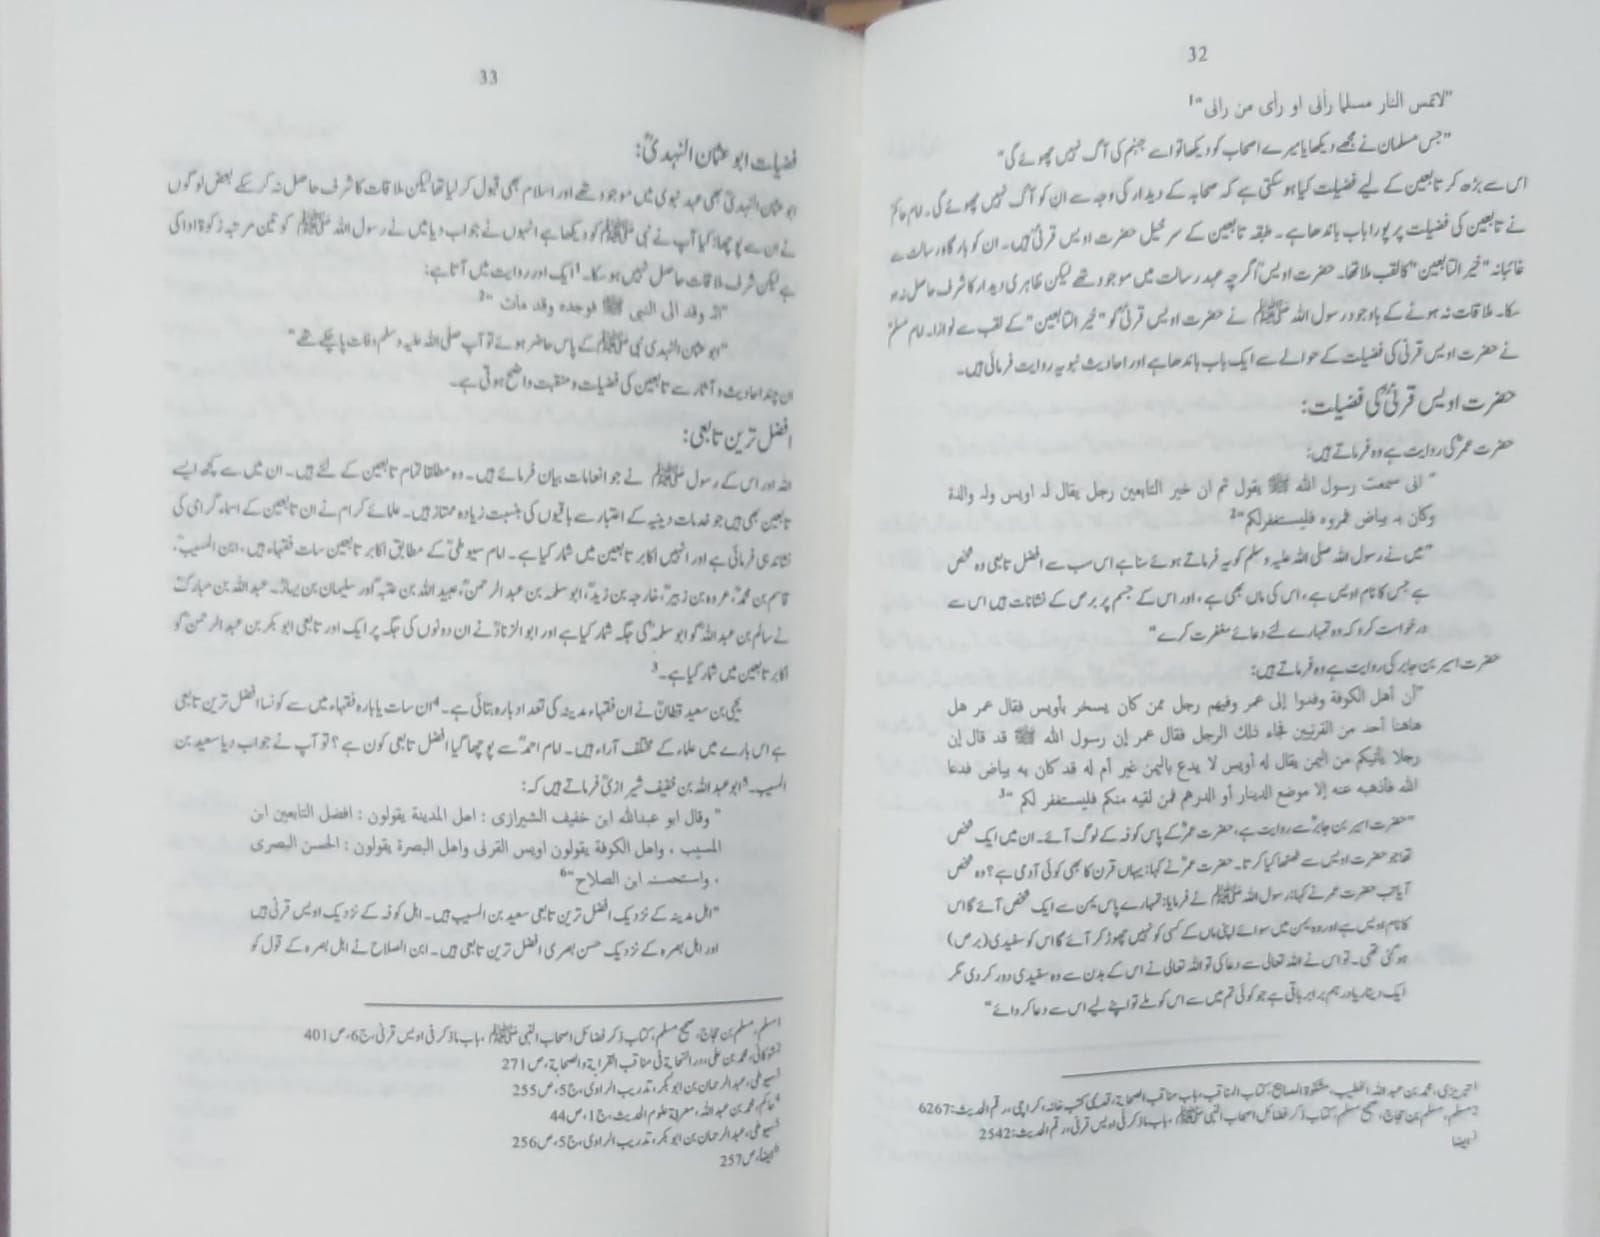 32
"لاتمس النار مسلما رأنی او رأی من رانی"1
"جس مسلمان نے مجھے دیکھا یا میرے اصحاب کو دیکھا تو اسے جہنم کی آگ نہیں چھوئے گی"
اس سے بڑھ کر تابعین کے لیے فضیلت کیا ہو سکتی ہے کہ صحابہ کے دیدار کی وجہ سے ان کو آگ نہیں چھوئے گی۔ امام حاکمؒ
نے تابعین کی فضیلت پر پورا باب باندھا ہے۔ طبقہ تابعین کے سرخیل حضرت اویس قرنیؒ ہیں۔ ان کو بارگاہ رسالت سے
غائبانہ "خیر التابعین" کا لقب ملا تھا۔ حضرت اویسؒ اگرچہ عہد رسالت میں موجود تھے لیکن ظاہری دیدار کا شرف حاصل نہ ہو
سکا۔ ملاقات نہ ہونے کے باوجود رسول اللہ ﷺ نے حضرت اویس قرنیؒ کو "خیر التابعین" کے لقب سے نوازا۔ امام مسلمؒ
نے حضرت اویس قرنی کی فضیلت کے حوالے سے ایک باب باندھا ہے اور احادیث نبویہ روایت فرمائی ہیں۔
حضرت اویس قرنیؒ کی فضیلت:
حضرت عمرؓ کی روایت ہے وہ فرماتے ہیں:
"انی سمعت رسول الله ﷺ یقول ثم ان خیر التابعین رجل یقال لہ اویس ولہ والدة
وکان بہ بیاض فمروہ فلیستغفرلکم"2
"میں نے رسول اللہ صلی اللہ علیہ وسلم کو یہ فرماتے ہوئے سنا ہے اس سب سے افضل تابعی وہ شخص
ہے جس کا نام اویس ہے، اس کی ماں بھی ہے، اور اس کے جسم پر برص کے نشانات ہیں اس سے
درخواست کرو کہ وہ تمہارے لئے دعائے مغفرت کرے"
حضرت اسیر بن جابر کی روایت ہے وہ فرماتے ہیں:
"أن أهل الكوفة وفدوا إلى عمر وفيهم رجل ممن كان يسخر بأويس فقال عمر هل
هاهنا أحد من القرنيين فجاء ذلك الرجل فقال عمر إن رسول الله ﷺ قد قال إن
رجلا يأتيكم من اليمن يقال له أويس لا يدع باليمن غير أم له قد كان به بياض فدعا
الله فأذهبه عنه إلا موضع الدينار أو الدرهم فمن لقيه منكم فليستغفر لكم"3
"حضرت اسیر بن جابرؓ سے روایت ہے، حضرت عمرؓ کے پاس کوفہ کے لوگ آئے۔ ان میں ایک شخص
تھا جو حضرت اویس سے ٹھٹھا کیا کرتا۔ حضرت عمرؓ نے کہا: یہاں قرن کا بھی کوئی آدمی ہے؟ وہ شخص
آیا تب حضرت عمر نے کہا: رسول اللہ ﷺ نے فرمایا: تمہارے پاس یمن سے ایک شخص آئے گا اس
کا نام اویس ہے اور وہ یمن میں سوائے اپنی ماں کے کسی کو نہیں چھوڑ کر آئے گا اس کو سفیدی (برص)
ہو گئی تھی۔ تو اس نے اللہ تعالی سے دعا کی تو اللہ تعالی نے اس کے بدن سے وہ سفیدی دور کر دی مگر
ایک دینار یا درہم برابر باقی ہے جو کوئی تم میں سے اس کو ملے تو اپنے لیے اس سے دعا کروائے"
1تبریزی، محمد بن عبد اللہ الخطیب، مشکوۃ المصابیح، کتاب المناقب، باب مناقب الصحابۃ، قدیمی کتب خانہ، کراچی، رقم الحدیث:6267
2مسلم، مسلم بن حجاج، صحیح مسلم، کتاب ذکر فضائل اصحاب النبی ﷺ، باب ماذکر فی اویس قرنی، رقم الحدیث:2542
3ایضا
33
فضیلت ابو عثمان النہدیؒ:
ابو عثمان النہدیؒ بھی عہد نبوی میں موجود تھے اور اسلام بھی قبول کر لیا تھا لیکن ملاقات کا شرف حاصل نہ کر سکے بعض لوگوں
نے ان سے پوچھا: کیا آپ نے نبی ﷺ کو دیکھا ہے انہوں نے جواب دیا میں نے رسول اللہ ﷺ کو تین مرتبہ زکوۃ ادا کی
ہے لیکن شرف ملاقات حاصل نہیں ہو سکا۔1 ایک اور روایت میں آتا ہے:
"انہ وفد الی النبی ﷺ فوجدہ وقد مات"2
"ابو عثمان النہدی نبی ﷺ کے پاس حاضر ہوئے تو آپ صلی اللہ علیہ وسلم وفات پا چکے تھے"
ان چند احادیث و آثار سے تابعین کی فضیلت و منقبت واضح ہوتی ہے۔
افضل ترین تابعی:
اللہ اور اس کے رسول ﷺ نے جو انعامات بیان فرمائے ہیں۔ وہ مطلقا تمام تابعین کے لئے ہیں۔ ان میں سے کچھ ایسے
تابعین بھی ہیں جو خدمات دینیہ کے اعتبار سے باقیوں کی بنسبت زیادہ ممتاز ہیں۔ علمائے کرام نے ان تابعین کے اسماء گرامی کی
نشاندہی فرمائی ہے اور انہیں اکابر تابعین میں شمار کیا ہے۔ امام سیوطیؒ کے مطابق اکابر تابعین سات فقہاء ہیں، ابن المسیبؒ،
قاسم بن محمدؒ، عروہ بن زبیرؒ، خارجہ بن زیدؒ، ابو سلمہ بن عبد الرحمنؒ، عبید اللہ بن عتبہؒ اور سلیمان بن یسارؒ۔ عبد اللہ بن مبارکؒ
نے سالم بن عبد اللہؒ کو ابو سلمہؒ کی جگہ شمار کیا ہے اور ابو الزنادؒ نے ان دونوں کی جگہ پر ایک اور تابعی ابو بکر بن عبد الرحمنؒ کو
اکابر تابعین میں شمار کیا ہے۔3
یحیی بن سعید قطانؒ نے ان فقہاء مدینہ کی تعداد بارہ بتائی ہے۔4 ان سات یا بارہ فقہاء میں سے کونسا افضل ترین تابعی
ہے اس بارے میں علماء کے مختلف آراء ہیں۔ امام احمدؒ سے پوچھا گیا افضل تابعی کون ہے؟ تو آپ نے جواب دیا سعید بن
المسیب۔5 ابو عبد اللہ بن خفیف شیرازیؒ فرماتے ہیں کہ:
"وقال ابو عبدالله ابن خفیف الشیرازی: اهل المدینة یقولون: افضل التابعین ابن
المسیب، واهل الکوفة یقولون اویس القرنی واهل البصرة یقولون: الحسن البصری
، واستحسنہ ابن الصلاح"6
"اہل مدینہ کے نزدیک افضل ترین تابعی سعید بن المسیب ہیں۔ اہل کوفہ کے نزدیک اویس قرنیؒ ہیں
اور اہل بصرہ کے نزدیک حسن بصری افضل ترین تابعی ہیں۔ ابن الصلاح نے اہل بصرہ کے قول کو
1مسلم، مسلم بن حجاج، صحیح مسلم، کتاب ذکر فضائل اصحاب النبی ﷺ، باب ماذکر فی اویس قرنی، ج6، ص401
2شوکانی، محمد بن علی، در السحابۃ فی مناقب القرابۃ والصحابۃ، ص271
3سیوطی، عبد الرحمان بن ابو بکر، تدریب الراوی، ج5، ص255
4حاکم، محمد بن عبد اللہ، معرفۃ علوم الحدیث، ج1، ص44
5سیوطی، عبد الرحمان بن ابو بکر، تدریب الراوی، ج5، ص256
6ایضا، ص257